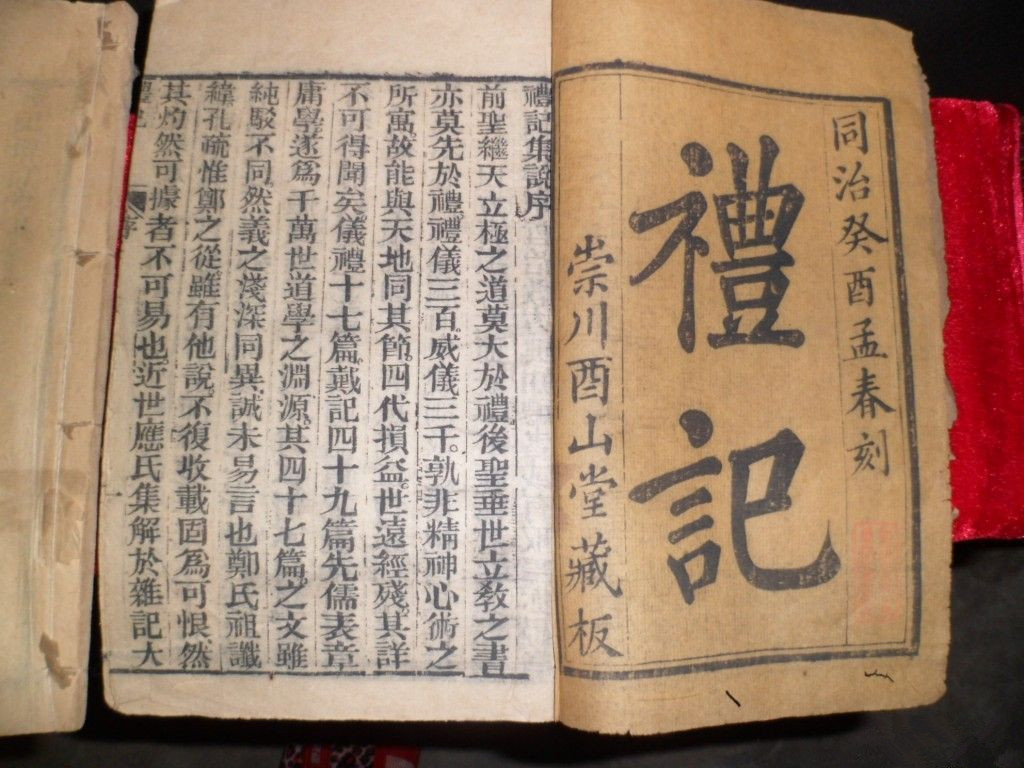 同治癸酉孟春刻
禮記
崇川酉山堂藏板
禮記集說序
前聖繼天立極之道莫大於禮後聖垂世立教之書
亦莫先於禮。禮儀三百。威儀三千。孰非精神心術之
所寓。故能與天地同其節。四代損益。世遠經殘。其詳
不可得聞矣。儀禮十七篇。戴記四十九篇。先儒表章
庸學。遂爲千萬世道學之淵源。其四十七篇。之文雖
純駁不同。然義之淺深同異。誠未易言也鄭氏祖讖
緯孔疏惟鄭之從雖有他說。不復收載固爲可恨。然
其灼然可據者不可易也近世應氏集解於雜記大
禮記
序
一